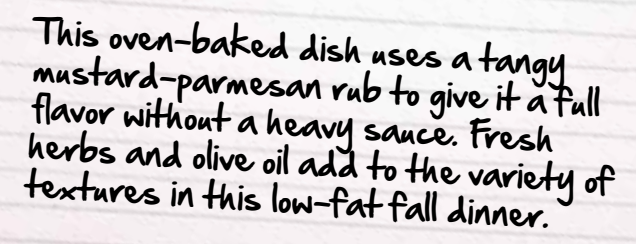 This oven-baked dish uses a tangy
mustard-parmesan rub to give it a full
flavor without a heavy sauce. Fresh
herbs and olive oil add to the variety of
textures in this low-fat fall dinner.